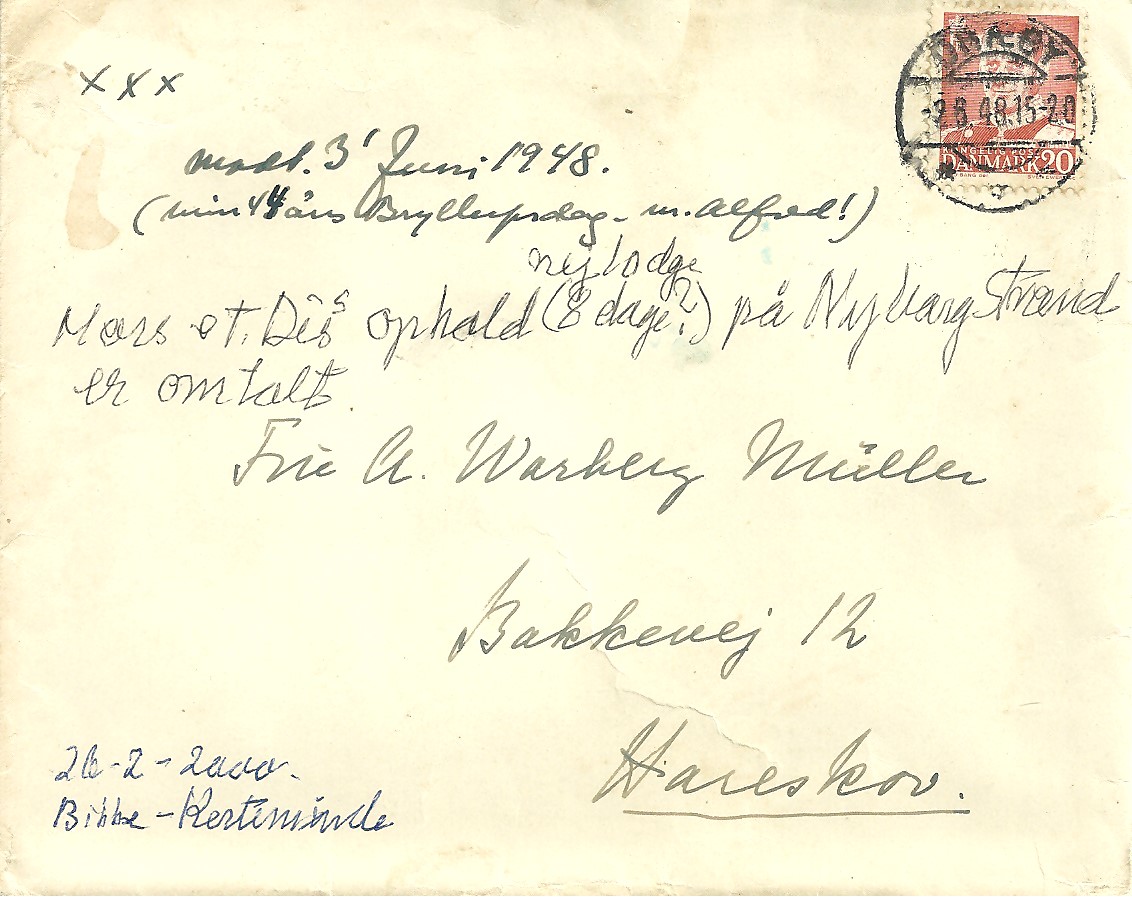 x x x
modt. 3' Juni 1948.
(min 44 års Bryllupsdag - m. Alfred!)
nej lodge
Mors et. Dis's ophold (8 dage?) på Nyborg Strand
er omtalt.
Fru A. Warberg Müller
Bakkevej 12
Hareskov.
26-2-2000.
Bibbe - Kerteminde
2.6.48.15-20
KONGELIG POST
DANMARK 20